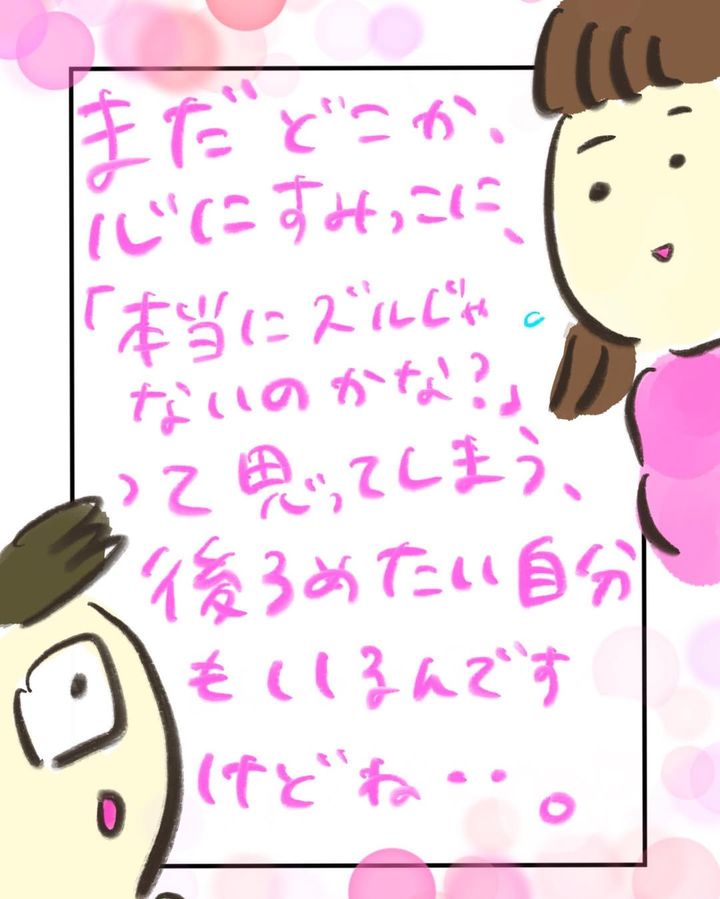 まだどこか、
心にすみっこに、
「本当にズルじゃ
ないのかな？」
って思ってしまう、
後ろめたい自分
もいるんです
けどね・・。